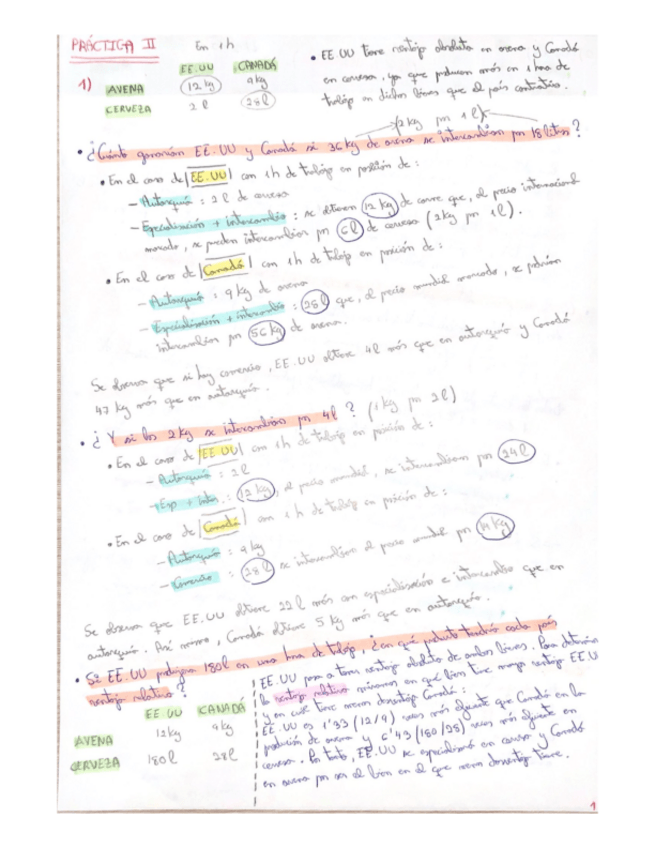 PRÁCTICA II
En 1h
EE.UU CANADÁ
1) AVENA 12 kg 9 kg
CERVEZA 2 l 28 l
• EE.UU tiene ventaja absoluta en avena y Canadá
en cerveza, ya que producen más en 1 hora de
trabajo en dichos bienes que el país contrario.
(2 kg por 1 l)
• ¿Cuánto ganarían EE.UU y Canadá si 36 kg de avena se intercambian por 18 litros?
• En el caso de EE.UU con 1h de trabajo en posición de:
- Autarquía: 2 l de cerveza
- Especialización + intercambio: se obtienen 12 kg de que, al precio internacional
marcado, se pueden intercambiar por 6 l de cerveza (2 kg por 1 l).
• En el caso de Canadá con 1h de trabajo en posición de:
- Autarquía: 9 kg de avena
- Especialización + intercambio: 28 l que, al precio mundial marcado, se podrían
intercambiar por 56 kg de avena.
Se observa que si hay comercio, EE.UU obtiene 4 l más que en autarquía y Canadá
47 kg más que en autarquía.
• ¿Y si los 2 kg se intercambian por 4 l? (1 kg por 2 l)
• En el caso de EE UU con 1h de trabajo en posición de:
- Autarquía: 2 l
- Esp + Inter.: 12 kg, al precio mundial, se intercambian por 24 l
• En el caso de Canadá con 1h de trabajo en posición de:
- Autarquía: 9 kg
- Comercio: 28 l se intercambian al precio mundial por 14 kg
Se observa que EE.UU obtiene 22 l más con especialización e intercambio que en
autarquía. Así mismo, Canadá obtiene 5 kg más que en autarquía.
• Si EE.UU produjera 180 l en una hora de trabajo, ¿en qué producto tendría cada país
ventaja relativa?
EE UU CANADÁ
AVENA 12 kg 9 kg
CERVEZA 180 l 28 l
EE.UU pasa a tener ventaja absoluta de ambos bienes. Para determinar
la ventaja relativa miramos en qué bien tiene mayor ventaja EE.U
y en cuál tiene menor desventaja Canadá:
EE.UU es 1'33 (12/9) veces más eficiente que Canadá en la
producción de avena y 6'43 (180/28) veces más eficiente en
cerveza. Por tanto, EE.UU se especializará en cerveza y Canadá
en avena por ser el bien en el que menos desventaja tiene.
1